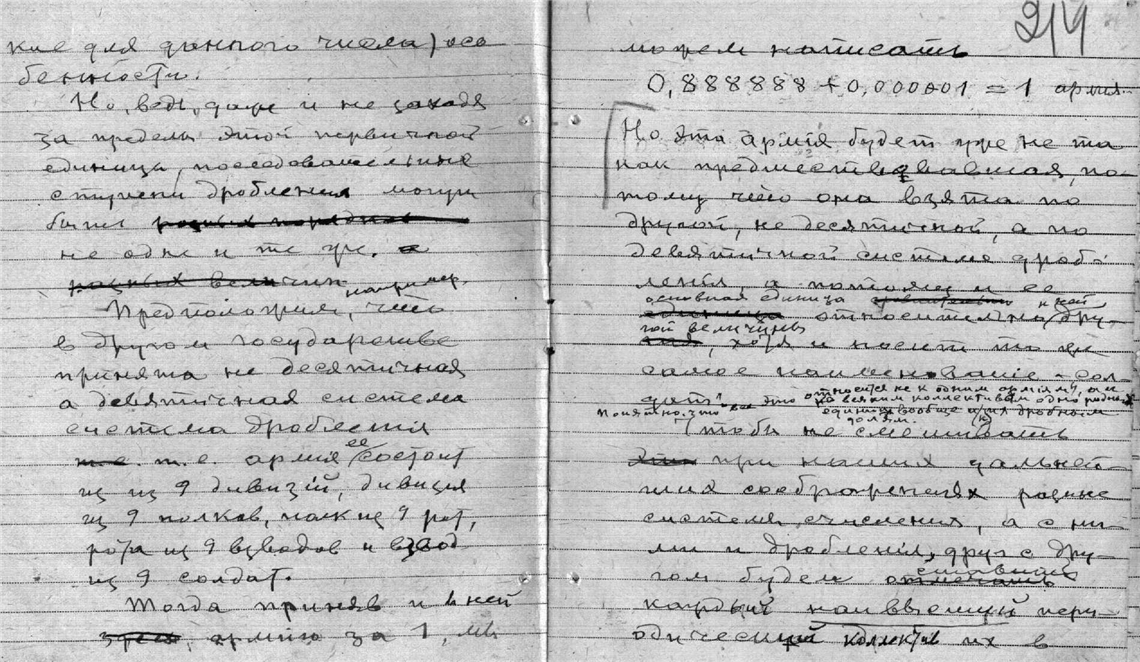 кие для данного числа) осо
бенности.
Но, ведь, даже и не заходя
за пределы этой первичной
единицы, последовательныя
ступени дробления могут
быть
не одне и те же. а
разных величин
например.
Предположим, что
в другом государстве
принята не десятичная
а девятичная система
система дробления
т.е. армия ее состоит
из из 9 дивизій, дивизия
из 9 полков, полк из 9 рот,
рота из 9 взводов и взвод
из 9 солдат.
Тогда приняв и в ней
армию за 1, мы
214
можем написать
0,888888 + 0,000001 = 1 армия
Но эта армія будет уже не та
как предшествовавшая, по-
тому что она взята по
другой, не десятичной, а по
девятичной системе дроб-
ления, а потому и ее
основная единица к ней
относительно дру-
гой величины
, хотя и носит то же
самое наименованіе - сол-
дат.
Понятно, что все это относится не к одним арміям, а и
ко всяким коллективам однородных
единиц вообще и их дробным
долям.
Чтобы не смешивать
при наших дальней-
ших соображеніях разные
системы счисления, а с ни-
ми и дробленія, друг с дру-
гом будем
каждый наивысший пери-
одический коллектив их в